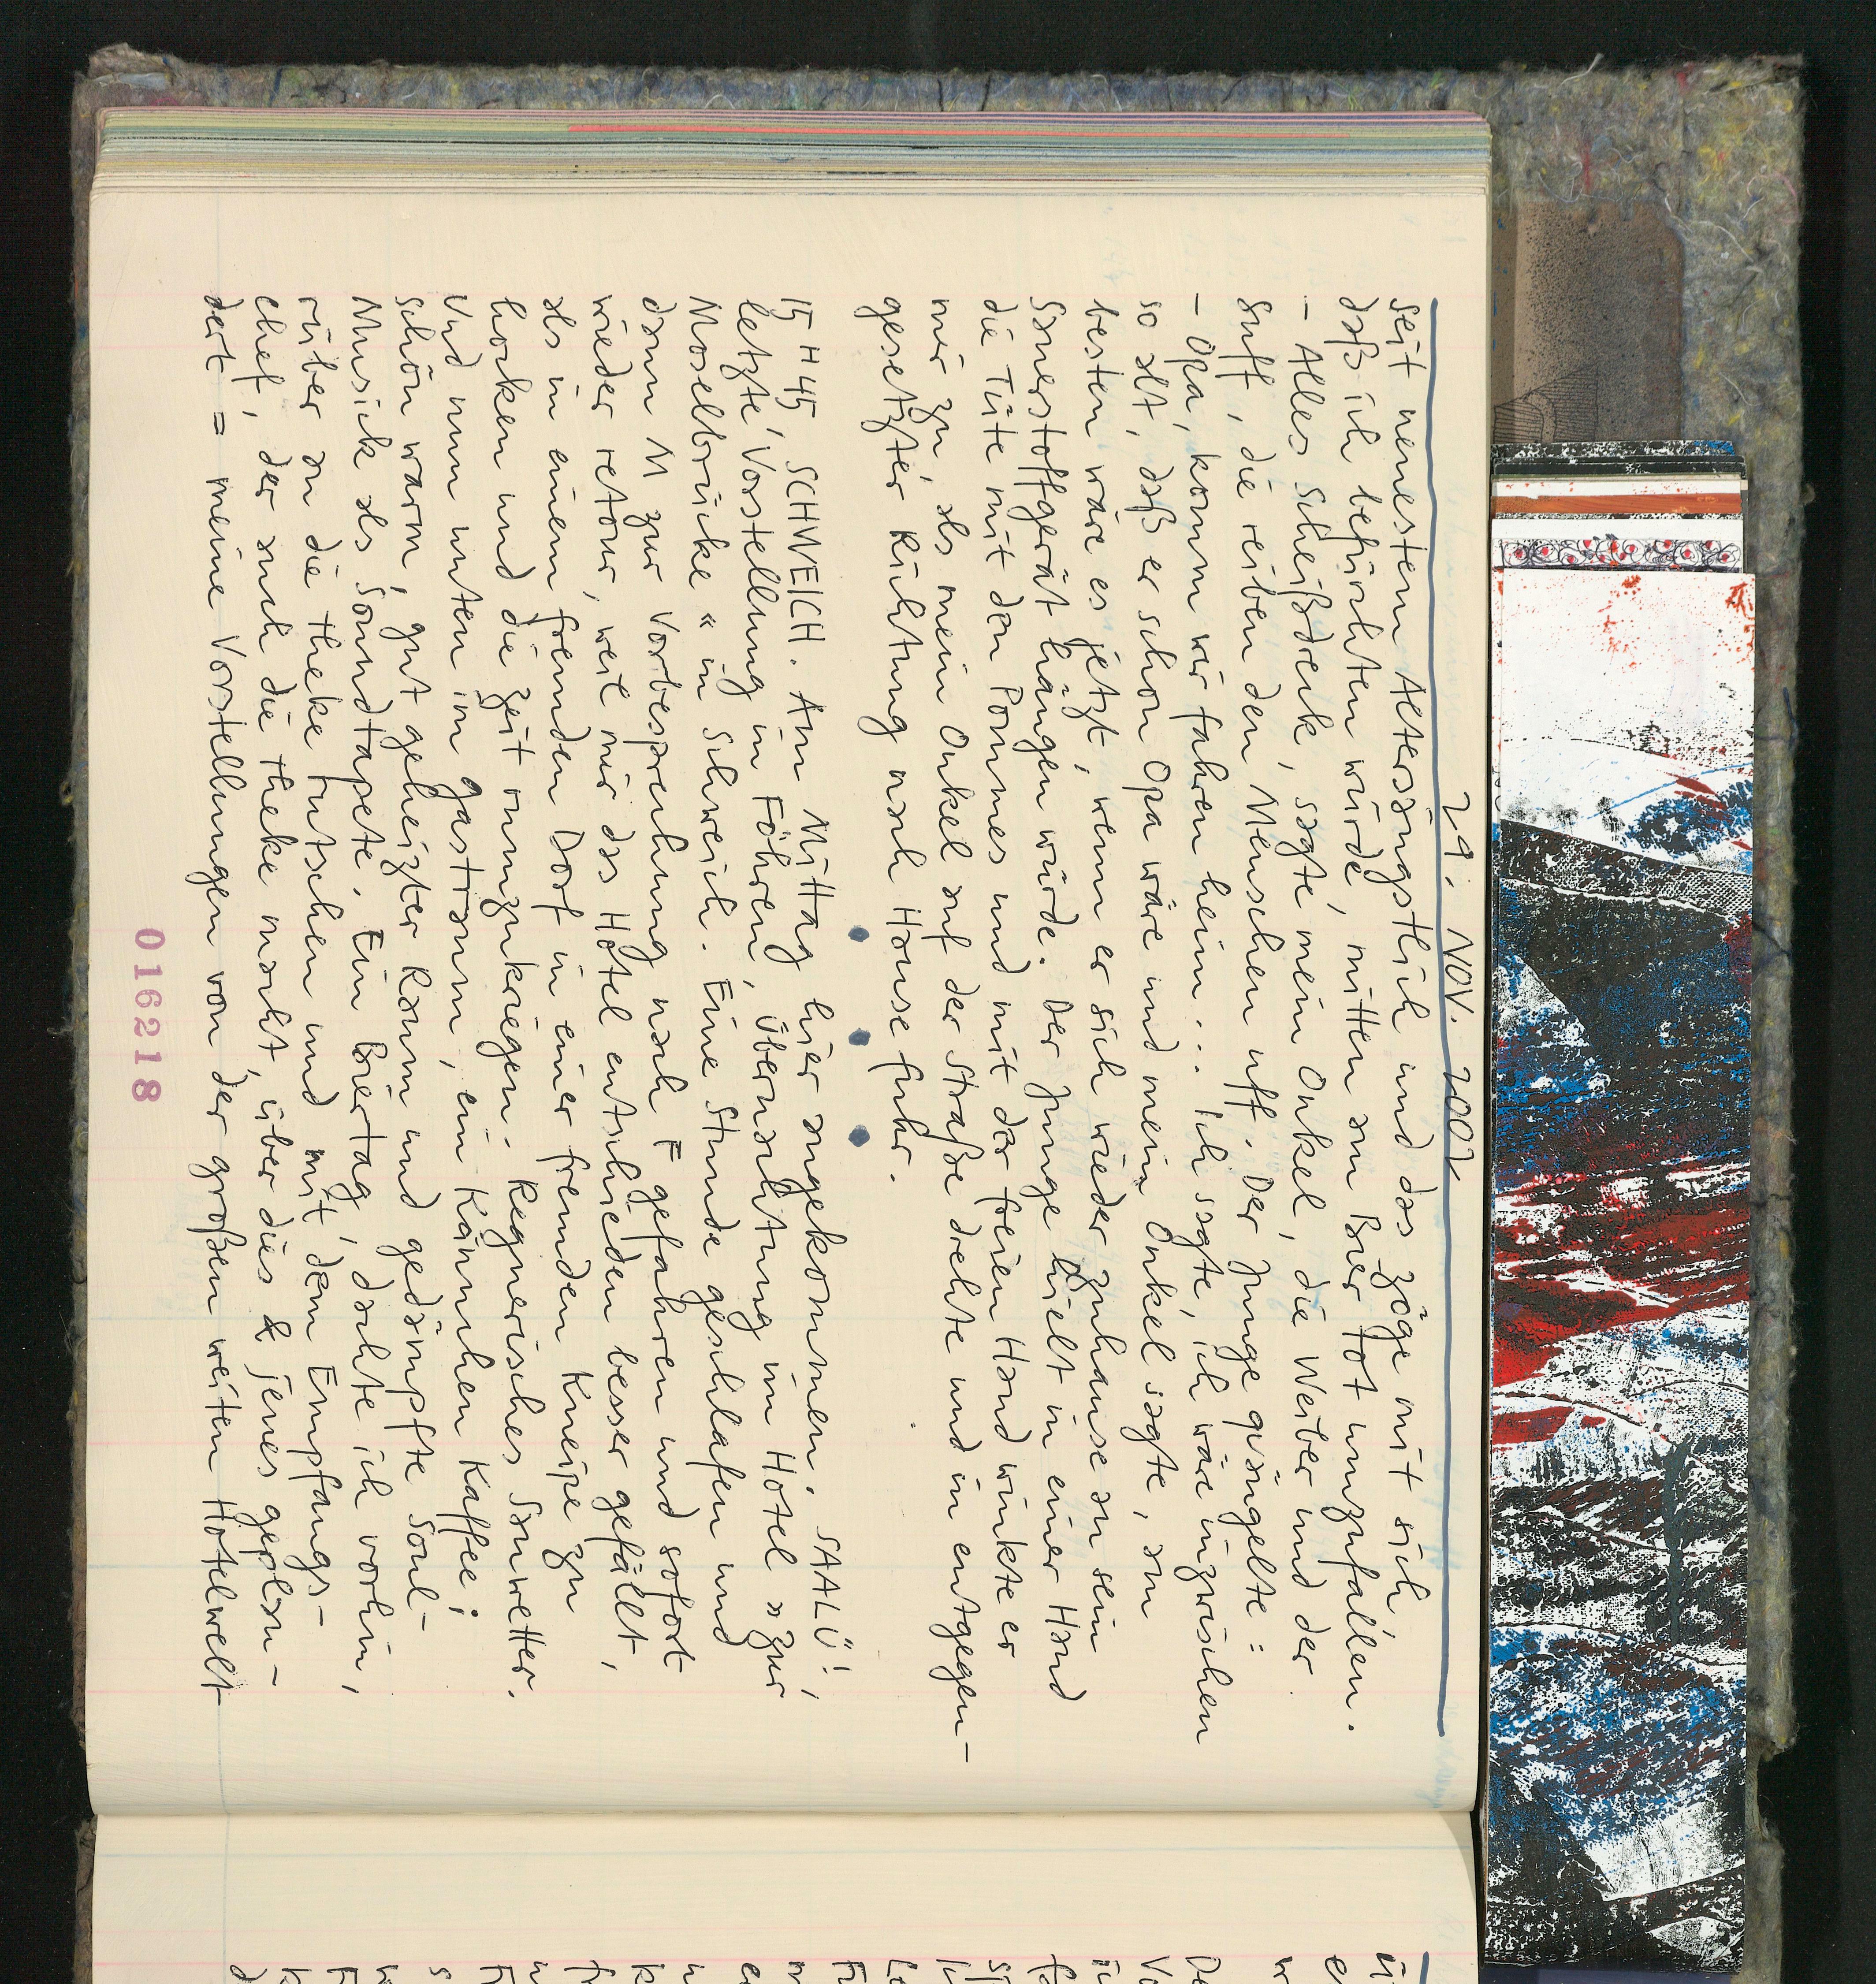 29. NOV. 2002
seit neuestem Altersängstlich und das zöge mit sich,
daß ich befürchten würde, mitten am Bier tot umzufallen.
– Alles Scheißdreck, sagte mein Onkel, die Weiber und der
Suff, die reiben den Menschen uff. Der Junge quängelte:
– Opa, komm wir fahren heim... Ich sagte, ich wäre inzwischen
so alt, daß er schon Opa wäre und mein Onkel sagte, am
besten wäre es jetzt, wenn er sich wieder zuhause an sein
Sauerstoffgerät hängen würde. Der Junge hielt in einer Hand
die Tüte mit den Pommes und mit der freien Hand winkte er
mir zu, als mein Onkel auf der Straße drehte und in entgegen-
gesetzter Richtung nach Hause fuhr.
15 H 45, SCHWEICH. Am Mittag hier angekommen, SAALÜ!,
letzte Vorstellung in Föhren, Übernachtung im Hotel »zur
Moselbrücke« in Schweich. Eine Stunde geschlafen und
dann M zur Vorbesprechung nach F gefahren und sofort
wieder retour, weil mir das Hotel entschieden besser gefällt,
als in einem fremden Dorf in einer fremden Kneipe zu
hocken und die Zeit rumzukriegen. Regnerisches Sauwetter.
Und nun unten im Gastraum, ein Kännchen Kaffee;
schön warm, gut geheizter Raum und gedämpfte Soul-
Musick als Soundtapete. Ein Biertag, dachte ich vorhin,
rüber an die Theke rutschen und mit dem Empfangs-
chef, der auch die Theke macht, über dies & jenes geplau-
dert = meine Vorstellungen von der großen weiten Hotelwelt
016218